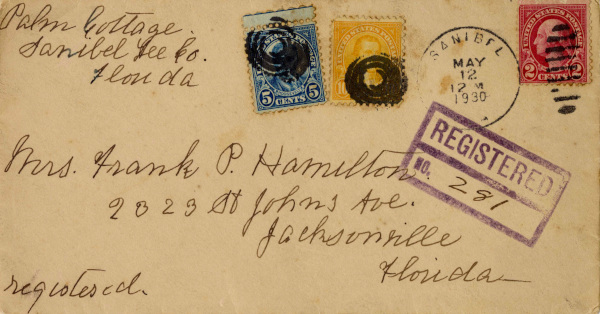 Palm Cottage.
Sanibel Lee Co.
Florida
5 CENTS 5
SANIBEL
MAY
12
12 M
1930
UNITED STATES POSTAGE
2 CENTS 2
REGISTERED
NO. 281
Mrs. Frank P. Hamilton
2323 St Johns Ave.
Jacksonville
Florida
registered.